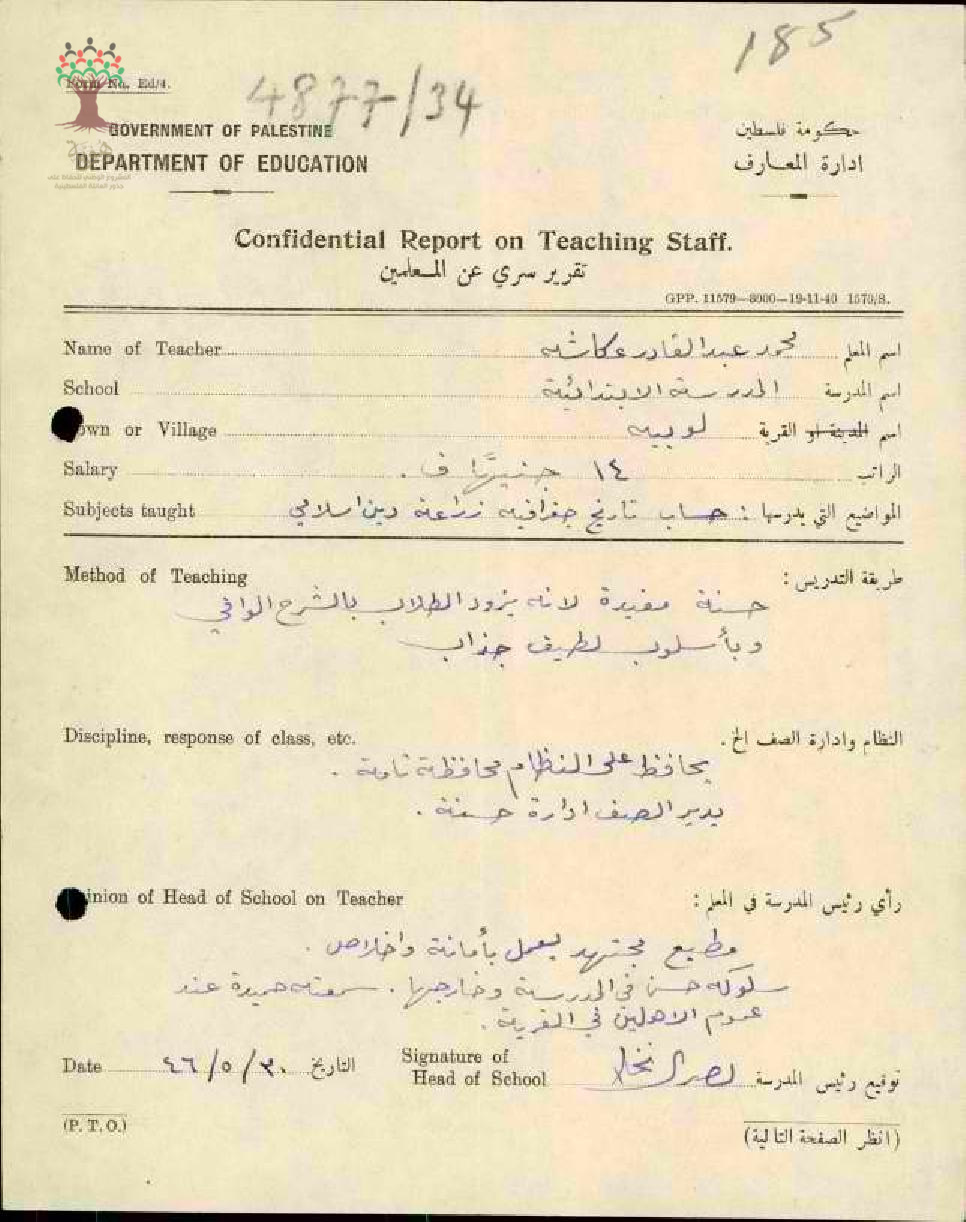 185
Form No. Ed/4.
4877/34
GOVERNMENT OF PALESTINE
حكومة فلسطين
DEPARTMENT OF EDUCATION
ادارة المعارف
هوية
المشروع الوطني للحفاظ على
جذور العائلة الفلسطينية
Confidential Report on Teaching Staff.
تقرير سري عن المعلمين
GPP. 11579—8000—19-11-40 1570/S.
Name of Teacher محمد عبد القادر عكاشه اسم المعلم
School المدرسة الابتدائية اسم المدرسة
own or Village لوبيه اسم المدينة او القرية
Salary ١٤ جنيهًا ف. الراتب
Subjects taught المواضيع التي يدرسها : حساب تاريخ جغرافيه زراعة دين اسلامي
Method of Teaching طريقة التدريس :
حسنة مفيدة لانه يزود الطلاب بالشرح الوافي
وبأسلوب لطيف جذاب
Discipline, response of class, etc. النظام وادارة الصف الخ .
يحافظ على النظام محافظة تامة .
يدير الصف ادارة حسنة .
inion of Head of School on Teacher رأي رئيس المدرسة في المعلم :
مطيع مجتهد يعمل بأمانة واخلاص .
سلوكه حسن في المدرسة وخارجها . سمعته حميدة عند
عموم الاهلين في القرية .
Date ٣٠/٥/٤٦ التاريخ
Signature of
Head of School توقيع رئيس المدرسة
(P. T. O.)
(انظر الصفحة التالية)